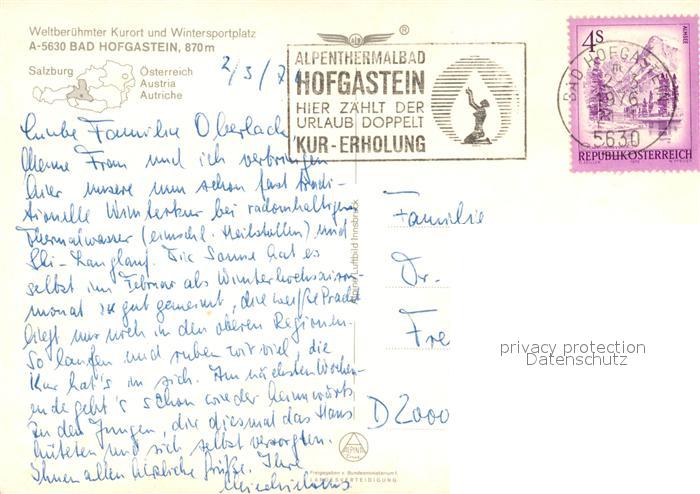 Weltberühmter Kurort und Wintersportplatz
A-5630 BAD HOFGASTEIN, 870 m
Salzburg
Österreich
Austria
Autriche
2/3/76
ALPENTHERMALBAD
HOFGASTEIN
HIER ZÄHLT DER
URLAUB DOPPELT
KUR-ERHOLUNG
4 S
ALMSEE
BAD HOFGASTEIN
1976
5630
REPUBLIK ÖSTERREICH
Liebe Familie Oberlach
Meine Frau und ich verbringen
hier unsere nun schon fast tradi-
tionelle Winterkur bei radonhaltigem
Thermalwasser (einschl. Heilstollen) und
Ski-Langlauf. Die Sonne hat es
selbst im Februar als Winterhochsaison-
monat zu gut gemeint, die weiße Pracht
liegt nur noch in den oberen Regionen.
So laufen und ruhen wir viel, die
Kur hat's in sich. Am nächsten Wochen-
ende geht's schon wieder heimwärts
zu den Jungen, die diesmal das Haus
hüteten und sich selbst versorgten.
Ihnen allen herzliche Grüße. Ihre
Alpine Luftbild Innsbruck
Familie
Dr.
Fre
D 2000
privacy protection
Datenschutz
ALPINE
Freigegeben v. Bundesministerium f.
LANDESVERTEIDIGUNG